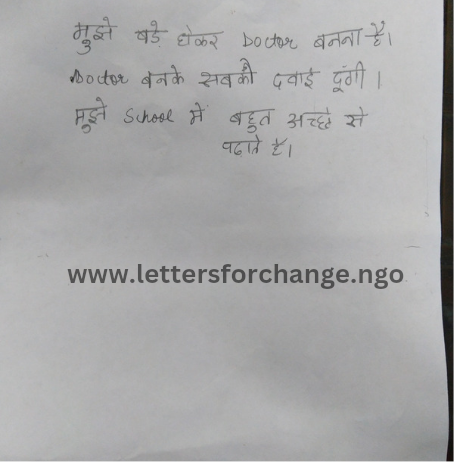 मुझे बड़े होकर Doctor बनना है।
Doctor बनके सबको दवाई दूंगी।
मुझे School में बहुत अच्छे से
पढाते है।
www.lettersforchange.ngo